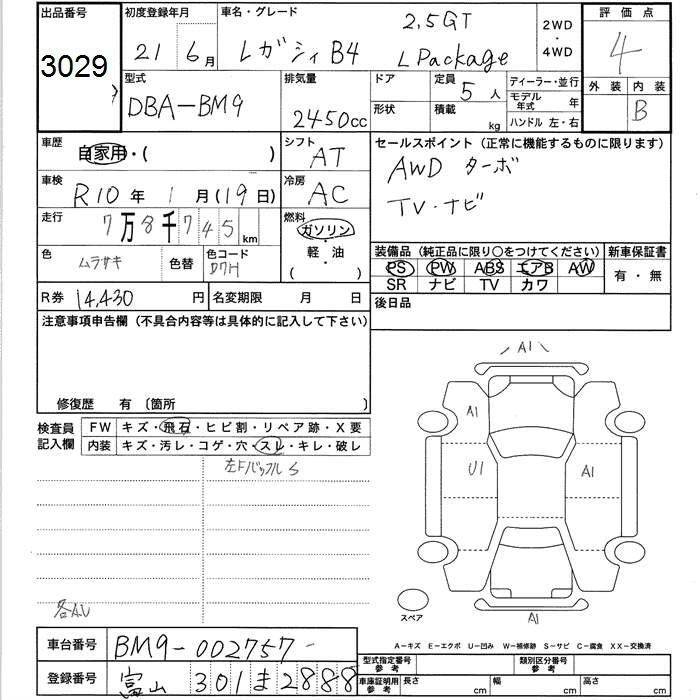 出品番号
3029
初度登録年月
21 6月
車名・グレード
レガシィB4 2.5GT L Package
2WD
・
4WD
評価点
4
外装 内装
B
型式
DBA-BM9
排気量
2450cc
ドア
形状
定員
5人
積載
kg
ディーラー・並行
モデル年式 年
ハンドル 左・右
車歴
自家用・( )
シフト
AT
車検
R10年 1月(19日)
冷房
AC
走行
7万8千745km
燃料
ガソリン
・
軽・油
( )
色
ムラサキ
色替
色コード
D7H
R券 14,430円
名変期限 月 日
セールスポイント(正常に機能するものに限ります)
AWD ターボ
TV・ナビ
装備品(純正品に限り○をつけてください)
PS PW ABS エアB AW
SR ナビ TV カワ
新車保証書
有・無
後日品
注意事項申告欄(不具合内容等は具体的に記入して下さい)
修復歴 有〔箇所 〕
検査員記入欄
FW キズ・飛石・ヒビ割・リペア跡・X要
内装 キズ・汚レ・コゲ・穴・スレ・キレ・破レ
左F S
A1
A1
U1
A1
A1
スペア
A-キズ E-エクボ U-凹み W-補修跡 S-サビ C-腐食 XX-交換済
車台番号
BM9-002757
登録番号
富山 301 ま 2888
型式指定番号
参考
類別区分番号
参考
車庫証明用
参考
長さ cm
幅 cm
高さ cm